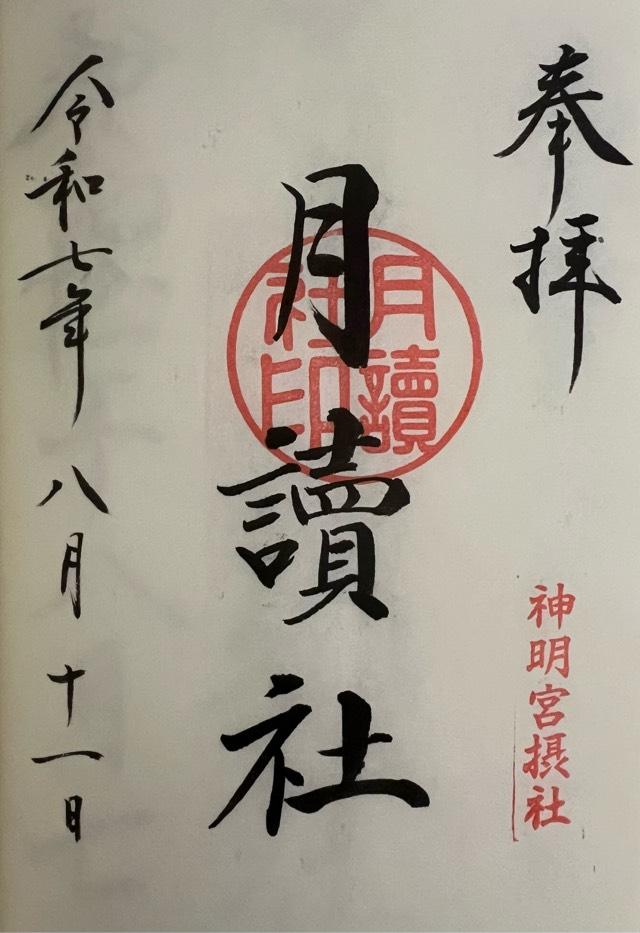 奉拝
神明宮摂社
月讀社
月讀
社印
令和七年八月十一日